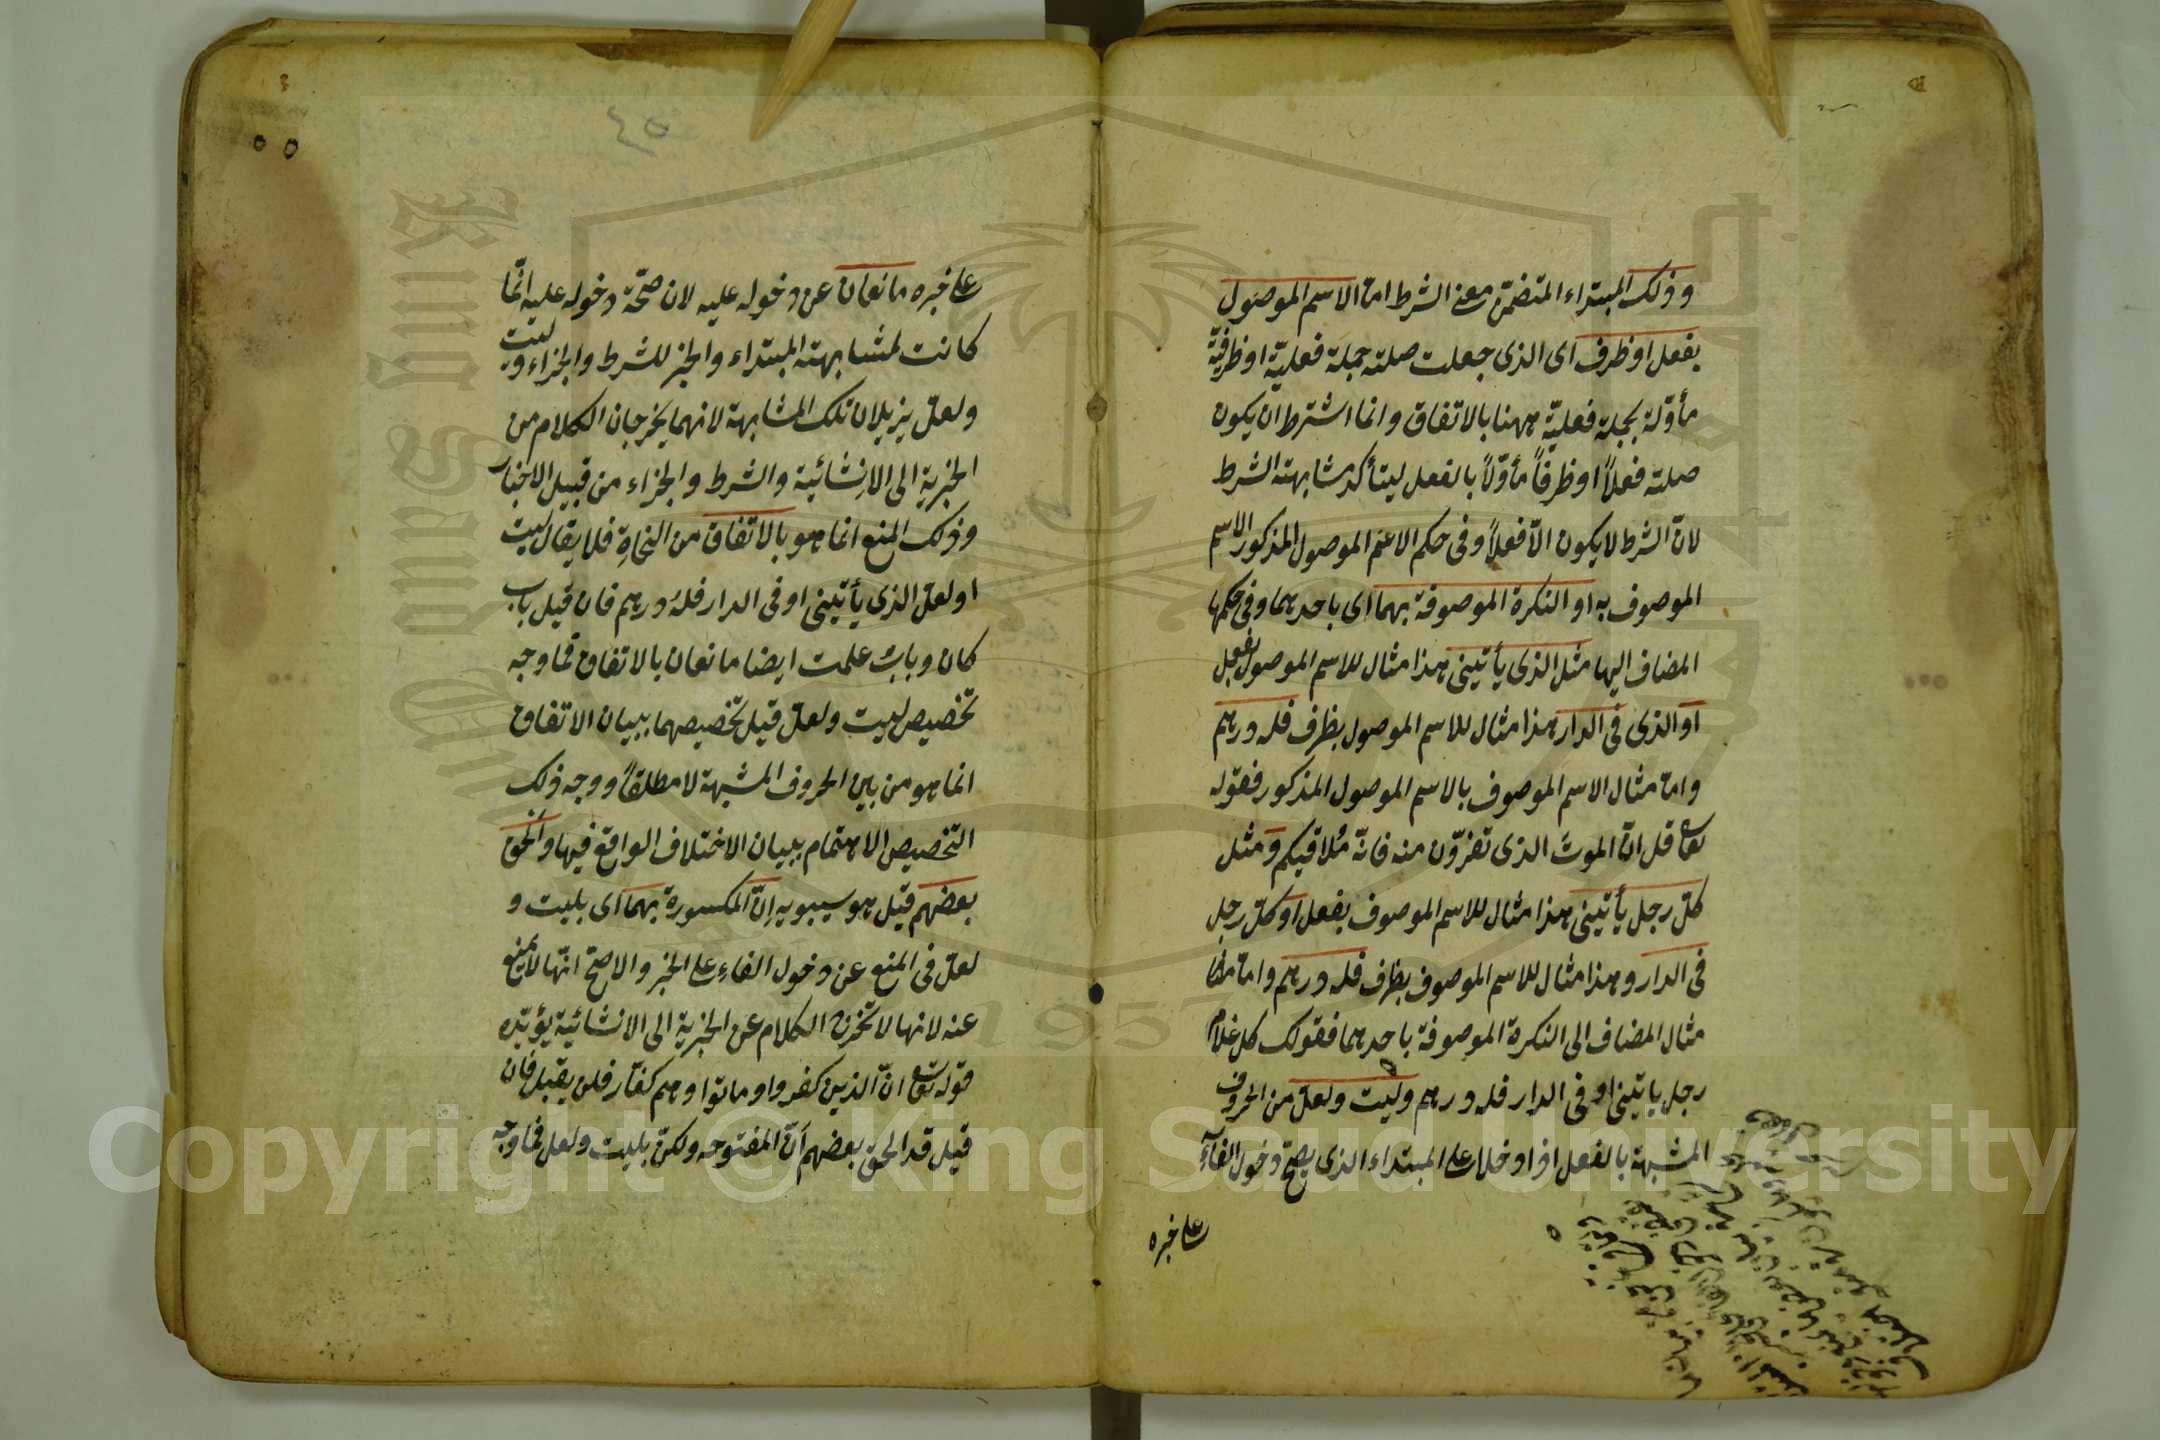 وذلك المبتداء المتضمن معنى الشرط اما الاسم الموصول
بفعل او ظرف اى الذى جعلت صلته جملة فعلية او ظرفية
مأوّلة بجملة فعلية ههنا بالاتفاق وانما اشترط ان يكون
صلته فعلاً او ظرفاً مأوّلاً بالفعل ليتأكد مشابهته الشرط
لانّ الشرط لا يكون الاّ فعلاً وفى حكم الاسم الموصول المذكور الاسم
الموصوف به او النكرة الموصوفة بهما اى باحدهما وفى حكمها
المضاف اليها مثل الذى يأتينى هذا مثال للاسم الموصول بفعل
او الذى فى الدار هذا مثال للاسم الموصول بظرف فله درهم
واما مثال الاسم الموصوف بالاسم الموصول المذكور فقوله
تعا قل انّ الموت الذى تفرّون منه فانّه مُلاقيكم ومثل
كلّ رجل يأتينى هذا مثال للاسم الموصوف بفعل او كلّ رجل
فى الدار وهذا مثال للاسم الموصوف بظرف فله درهم واما
مثال المضاف الى النكرة الموصوفة باحدهما فقولك كل غلام
رجل ياتينى او فى الدار فله درهم وليت ولعلّ من الحروف
المشبهة بالفعل اذا دخلا على المبتداء الذى يصحّ دخول الفآء
على خبره
على خبره مانعان عن دخوله عليه لان صحّة دخوله عليه انّما
كانت لمشابهته المبتداء والخبر للشرط والجزاء وليت
ولعلّ يزيلان تلك المشابهة لانهما يخرجان الكلام من
الخبرية الى الانشائية والشرط والجزاء من قبيل الاخبار
وذلك المنع انما هو بالاتفاق من النحاةِ فلا يقال ليت
او لعلّ الذى يأتينى او فى الدار فلهُ درهم فان قيل باب
كان وبابُ علمت ايضا مانعان بالاتفاق فما وجه
تخصيص ليت ولعلّ قيل تخصيصهما ببيان الاتفاق
انما هو من بين الحروف المشبهة لا مطلقاً ووجه ذلك
التخصيص الاهتمام ببيان الاختلاف الواقع فيها والحق
بعضهم قيل هو سيبويه اِنّ المكسورة بهما اى بليت و
لعلّ فى المنع عن دخول الفاء على الخبر والاصحّ انّها لا يمنع
عنه لانها لا تخرج الكلام عن الخبرية الى الانشائية يؤيّده
قوله تعا انّ الذين كفروا وماتوا وهم كفّار فلن يقبل فان
قيل قد الحق بعضهم اَنّ المفتوحه ولكنّ بليت ولعل فما وجه